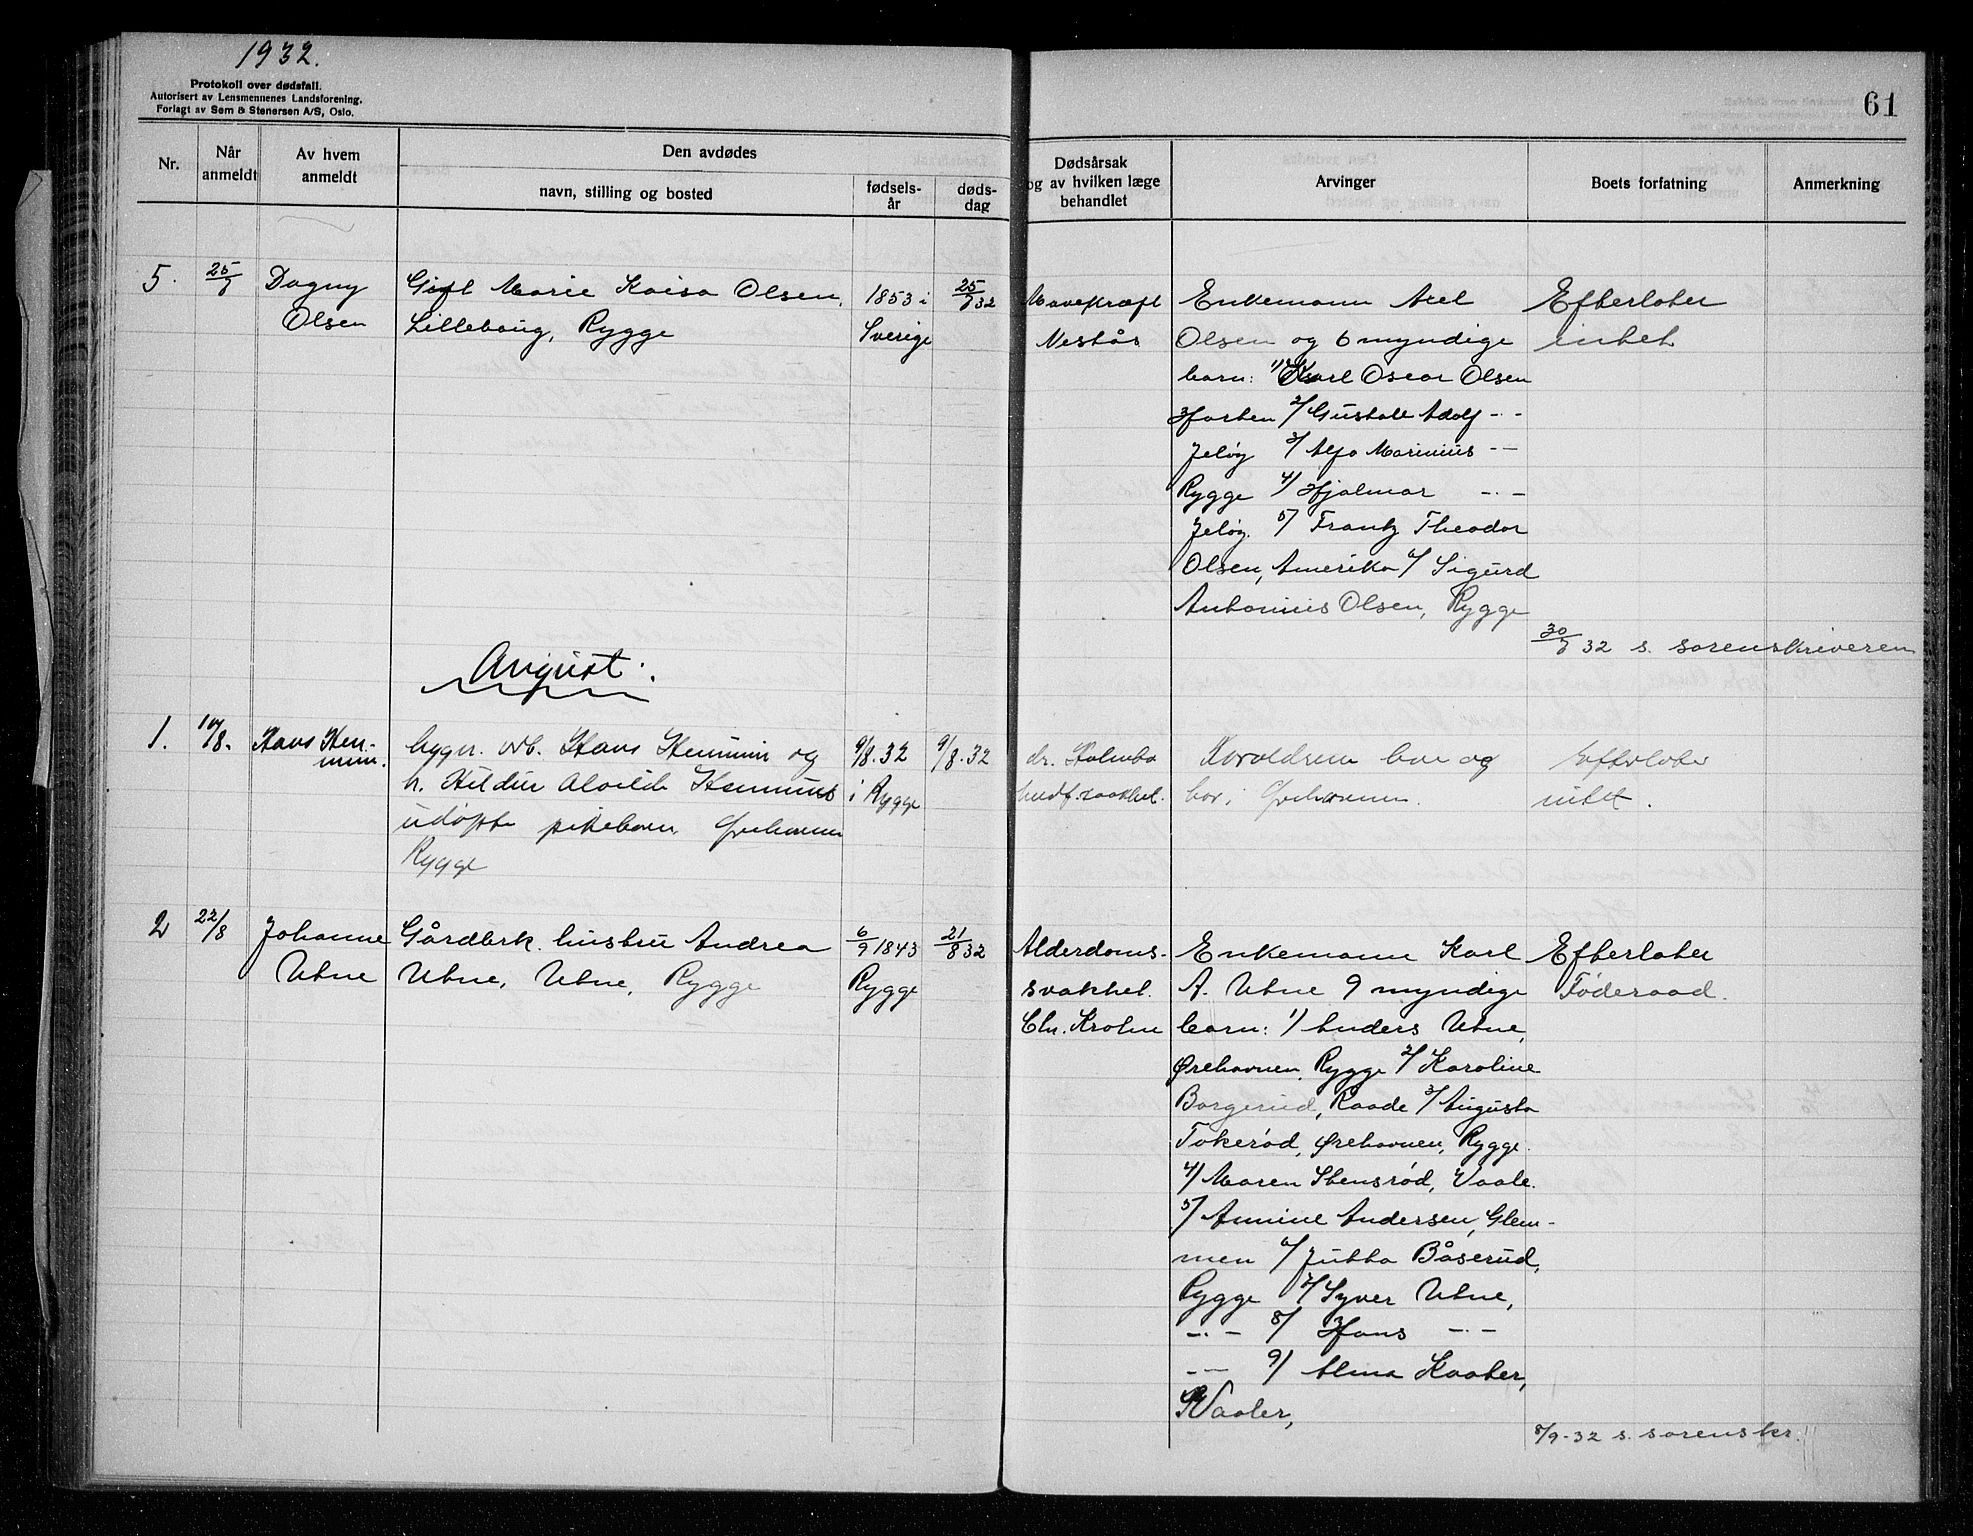 1932.
Protokoll over dødsfall.
Autorisert av Lensmennenes Landsforening.
Forlagt av Sem & Stenersen A/S, Oslo.
61
Nr.
Når anmeldt
Av hvem anmeldt
Den avdødes
navn, stilling og bosted
fødsels-år
døds-dag
Dødsårsak og av hvilken læge behandlet
Arvinger
Boets forfatning
Anmerkning
5. 25/7 Dagny Gift Marie Kaisa Olsen, 1853 i 25/7 32 Mavekræft Enkemann Axel Efterlater
Olsen Lillebaug, Rygge Sverige Nestås Olsen og 6 myndige intet
barn: 1/ Karl Oscar Olsen
Horten 2/ Gustave Adolf -"-
Jeløy 3/ Alfo Marinius -"-
Rygge 4/ Hjalmar -"-
Jeløy. 5/ Frantz Theodor
Olsen, Amerika 6/ Sigurd
Antonius Olsen, Rygge
30/7 32 s. sorenskriveren
August.
1. 10/8. Hans Hem- bygn. arb. Hans Hemmin og 9/8.32 9/8.32 dr. Holmbo Foreldrene bor og Efterlater
min. h. Hildur Alvilde i Rygge bor i intet.
udøpte pikebarn Ørehavnen
Rygge
2 22/8 Johanne Gårdbrk. hustru Andrea 6/9 1843 21/8 32 Alderdoms- Enkemann Karl Efterlater
Utne Utne, Utne, Rygge Rygge svakhet. A. Utne 9 myndige Føderaad.
Chr. Krohn barn: 1/ Anders Utne,
Ørehavnen, Rygge 2/ Karoline
Borgerud, Raade 3/ Augusta
Tokerød, Ørehavnen, Rygge.
4/ Maren Stensrød, Vaale.
5/ Annine Andersen, Glem-
men 6/ Jutta Båserud,
Rygge 7/ Syver Utne,
-"- 8/ Hans -"-
-"- 9/ Alma Kaater,
Vaaler,
8/9-32 s. sorenskr.